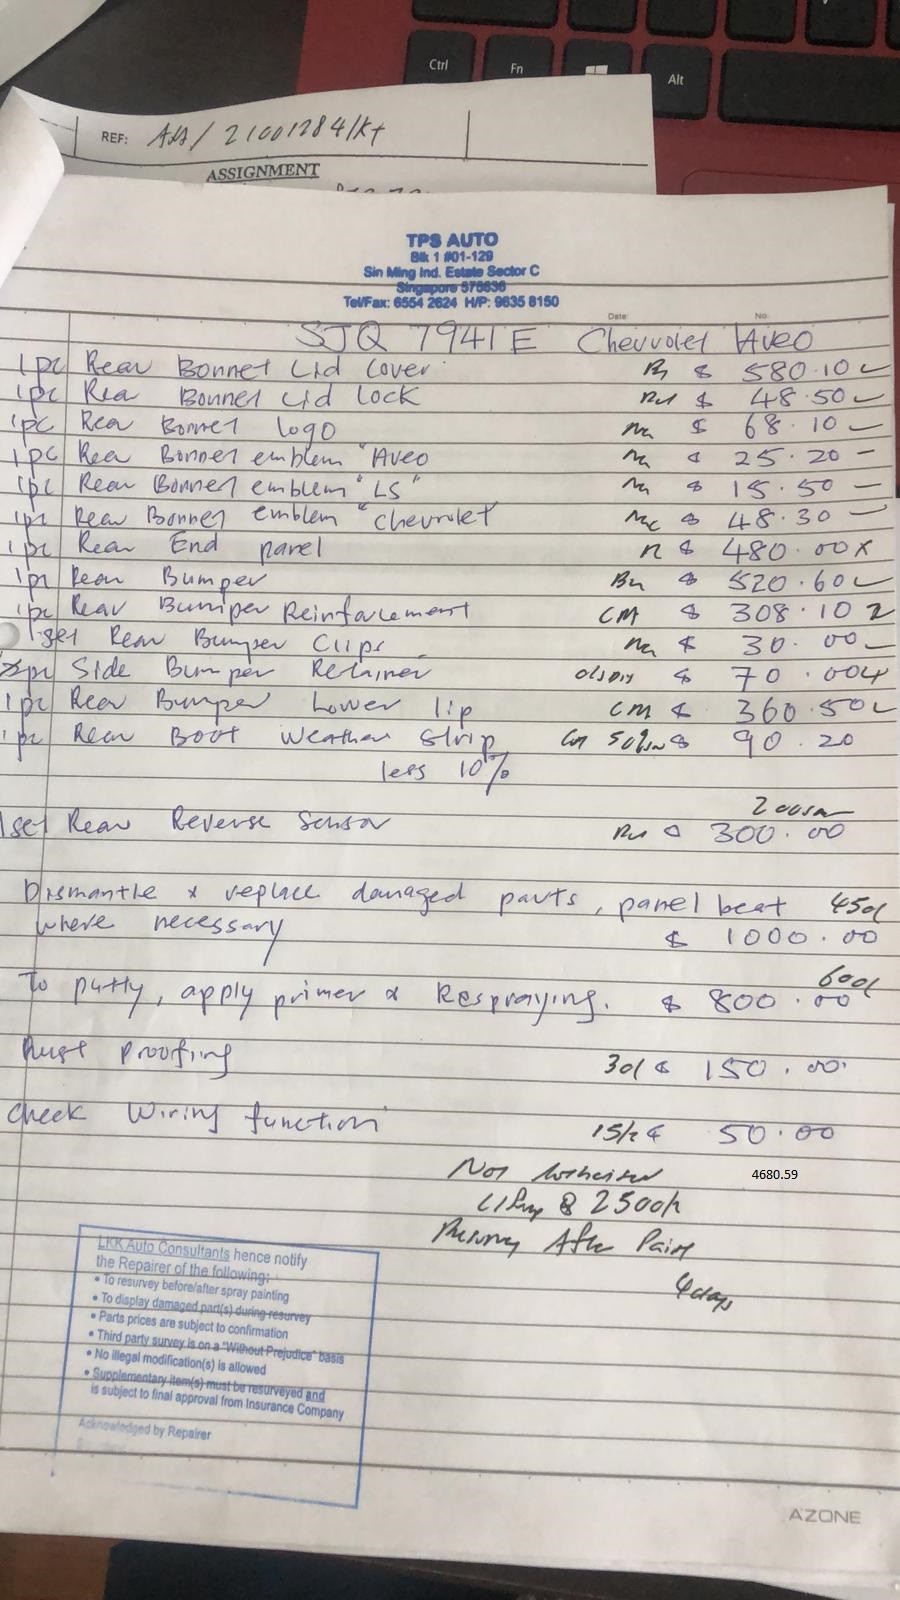 Ctrl
Fn
Alt
REF: 21001284/Kt
ASSIGNMENT
TPS AUTO
Blk 1 #01-129
Sin Ming Ind. Estate Sector C
Singapore 575636
Tel/Fax: 6554 2624 H/P: 9635 8150
Date: No.
SJQ 7941E Chevrolet Aveo
1pc Rear Bonnet Lid Cover $ 580.10
1pc Rea Bonnet Lid Lock $ 48.50
1pc Rea Bonnet Logo na $ 68.10
1pc Rea Bonnet emblem "Aveo na $ 25.20
1pc Rear Bonnet emblem "LS" na $ 15.50
1pc Rear Bonnet emblem "Chevrolet $ 48.30
1pc Rear End panel $ 480.00 x
1pc Rear Bumper $ 520.60
1pc Rear Bumper Reinforcement CM $ 308.10
1set Rear Bumper Clips na $ 30.00
2pc Side Bumper Retainer $ 70.00
1pc Rear Bumper Lower lip CM $ 360.50
1pc Rear Boot Weather Strip $ 90.20
less 10%
200
1set Rear Reverse Sensor $ 300.00
Dismantle & replace damaged parts, panel beat 450
where necessary $ 1000.00
600
To putty, apply primer & Respraying. $ 800.00
Rust Proofing 30 $ 150.00
Check Wiring function 15 $ 50.00
Not 4680.59
2500
After Paint
4 days
LKK Auto Consultants hence notify
the Repairer of the following:
• To resurvey before/after spray painting
• To display damaged part(s) during resurvey
• Parts prices are subject to confirmation
• Third party survey is on a "Without Prejudice" basis
• No illegal modification(s) is allowed
• Supplementary item(s) must be resurveyed and
is subject to final approval from Insurance Company
Acknowledged by Repairer
AZONE